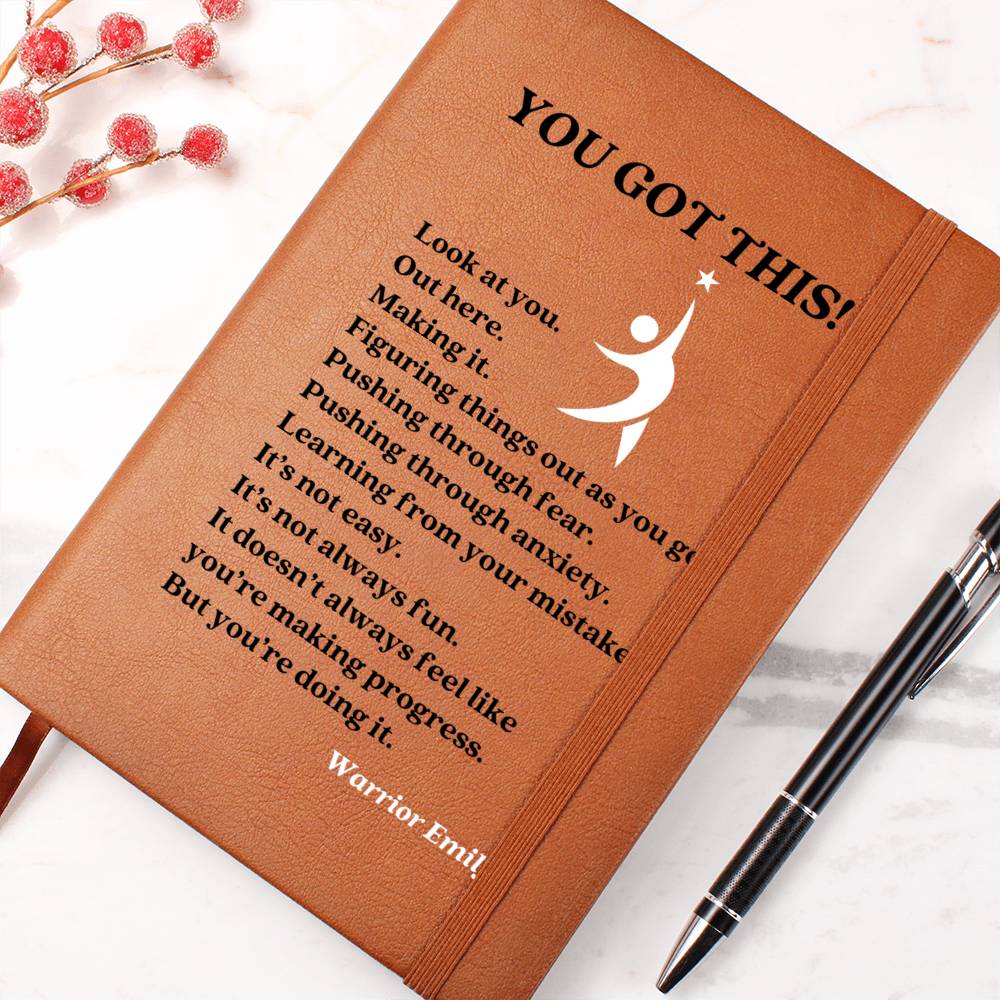 YOU GOT THIS!
Look at you.
Out here.
Making it.
Figuring things out as you go
Pushing through fear.
Pushing through anxiety.
Learning from your mistake
It's not easy.
It's not always fun.
It doesn't always feel like
you're making progress.
But you're doing it.
Warrior Emil